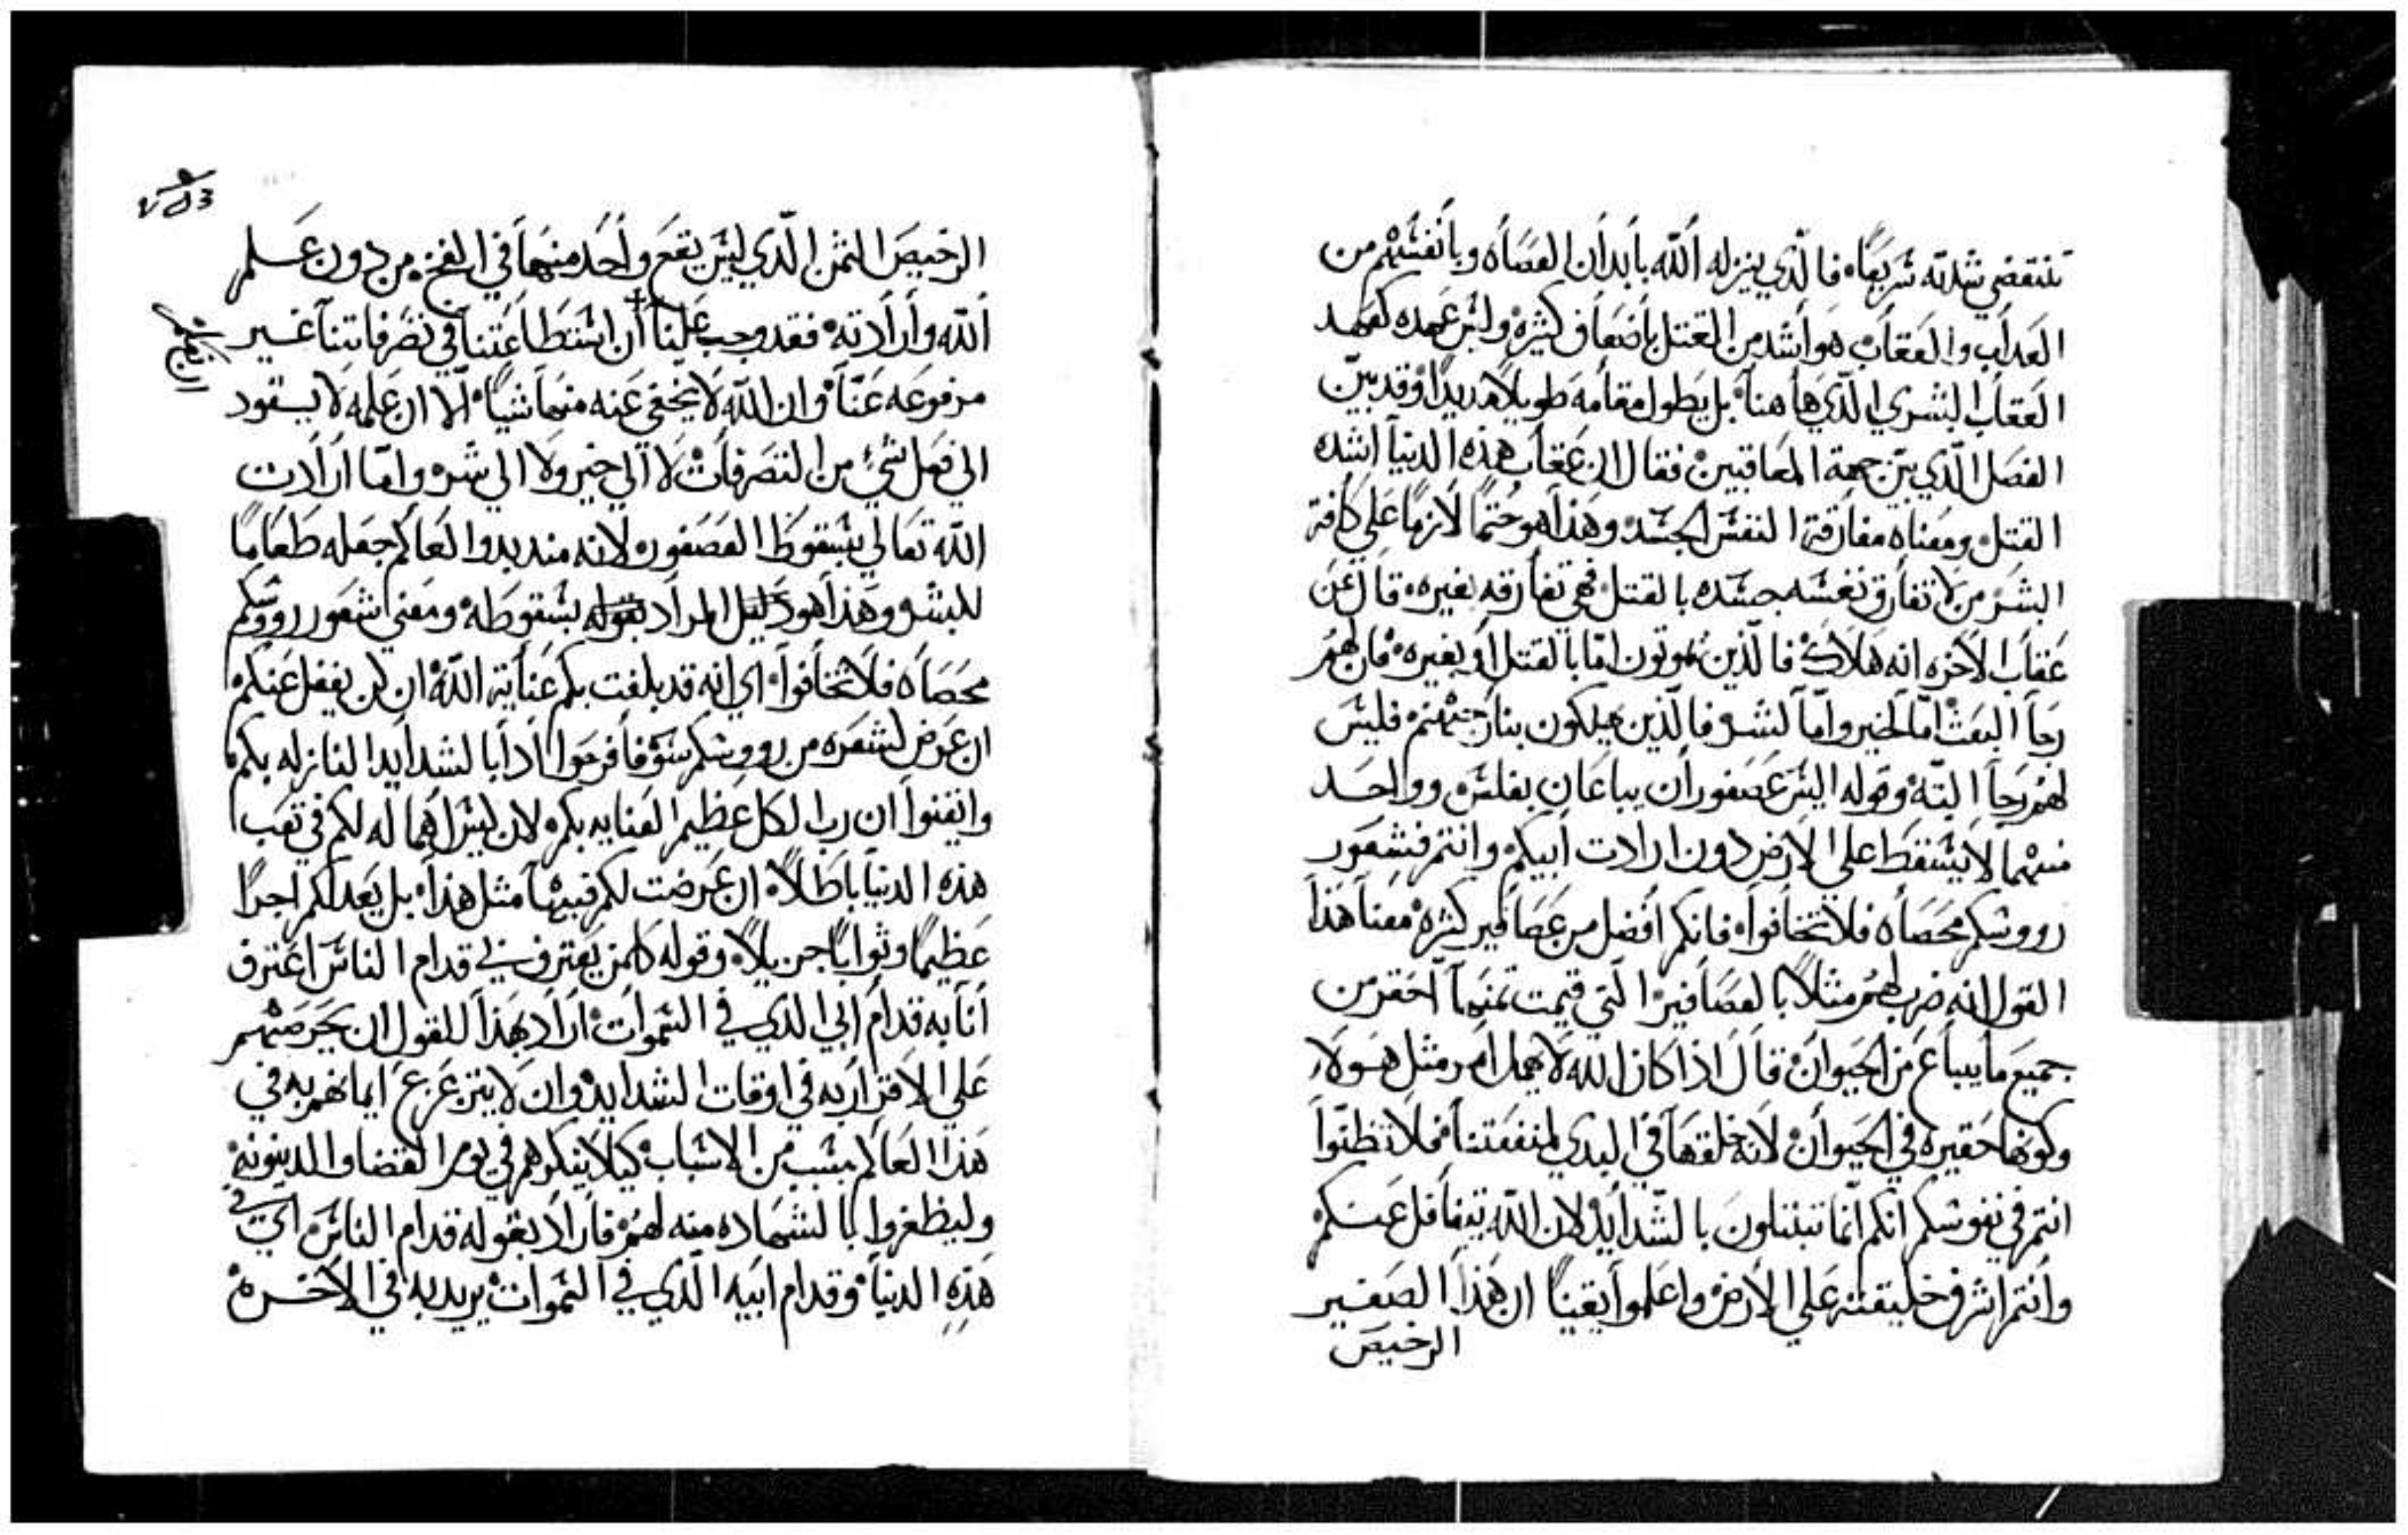 تنقضي شدته سَريعًا فالذي ينزله الله بأبدان العصَاه وبأنفسهم من
العذاب والعقاب هو أشد من القتل بأضعاف كثيره وليس عهده كعهد
العقاب البشري الذي هاهنا بل يطول مقامه طويلاً مديدًا وقد بيّن
الفصل الذي بين جهة المعاقبين فقال ان عقاب هذه الدنيا اشده
القتل ومعناه مفارقة النفس الجسد وهذا هو حتمًا لازمًا على كافة
البشر من لا تفارق نفسه جسده بالقتل فهي تفارقه بغيره قال عن
عقاب الاخره انه هلاك فالذين يموتون امّا بالقتل أو بغيره فان لهم
رجاء البعث امّا لخير وامّا لشر فالذين يهلكون بنار جهنم فليس
لهم رجاء البتّه وقوله اليس عصفوران يباعان بفلس وواحد
منهما لا يسقط على الارض دون ارادت أبيكم وانتم فشعور
رووسكم محصاه فلا تخافوا فانكم أفضل من عصافير كثيره معنا هذا
القول انه ضرب لهم مثلاً بالعصافير التي قيمت ثمنهما احقر من
جميع ما يباع من الحيوان قال اذا كان الله لا يهمل امر مثل هولا
وكونها حقيره في الحيوان لانه خلقها في البدي لمنفعتنا فلا تظنّوا
انتم في نفوسكم انكم انّما تبتلون بالشدايد لان الله يتغافل عنكم
وانتم اشرف خليقته على الارض واعلموا يقينًا ان هذا الصغير
الرخيص
الرخيص الثمن الّذي ليس يقع واحد منهما في الفخ من دون علم
الله وارادته فقد وجب علينا أن استطاعتنا في تصرفاتنا غير
مرفوعه عنّا وان الله لا يخفى عنه منها شيًا الّا ان علمه لا يسقود
الى فعل شيء من التصرفات لا الى خير ولا الى شر واما ارادت
الله تعالى بسقوط العصفور لانه منذ بدو العالم جعله طعامًا
للبشر وهذا هو دليل المراد بقوله بسقوطه ومعنى شعور رووسكم
محصاه فلا تخافوا اي انه قد بلغت بكم عناية الله ان لن يغفل عنكم
ان عرض لشعره من رووسكم سوءً فافرحوا اذًا بالشدايد النازله بكم
واتقنوا ان رب الكل عظيم العنايه بكم لان ليس اهماله لكم في تعب
هذه الدنيا باطلاً ان عرضت لكم فيها مثل هذا بل يعد لكم اجرًا
عظيمًا وثوابًا جزيلاً وقوله كلمن يعترف بي قدام الناس اعترف
أنا به قدام ابي الذي في السموات اراد بهذا القول ان يحرصهم
على الاقرار به في اوقات الشدايد وان لا يتزعزع ايمانهم به في
هذا العالم بسبب من الاسباب كيلا ينكرهم في يوم القضا والدينونه
وليظفروا بالشهاده منه لهم فأراد بقوله قدام الناس اي في
هذه الدنيا وقدام ابيه الّذي في السموات يريد به في الاخره